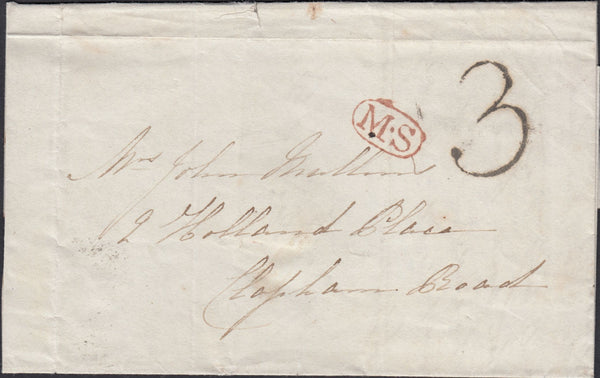 3
M:S
Mrs John Mullins
2 Holland Place
Clapham Road